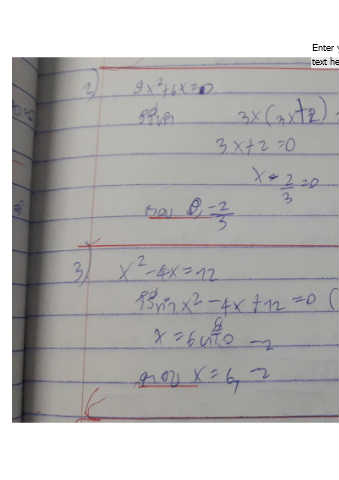 Enter
text he
2) 9x²+6x=0
วิธีทำ 3x(3x+2)=
3x+2=0
x-2/3=0
ตอบ 0,-2/3
3) x²-4x=12
วิธีทำ x²-4x+12=0 (
x=6 หรือ -2
ตอบ x=6,-2